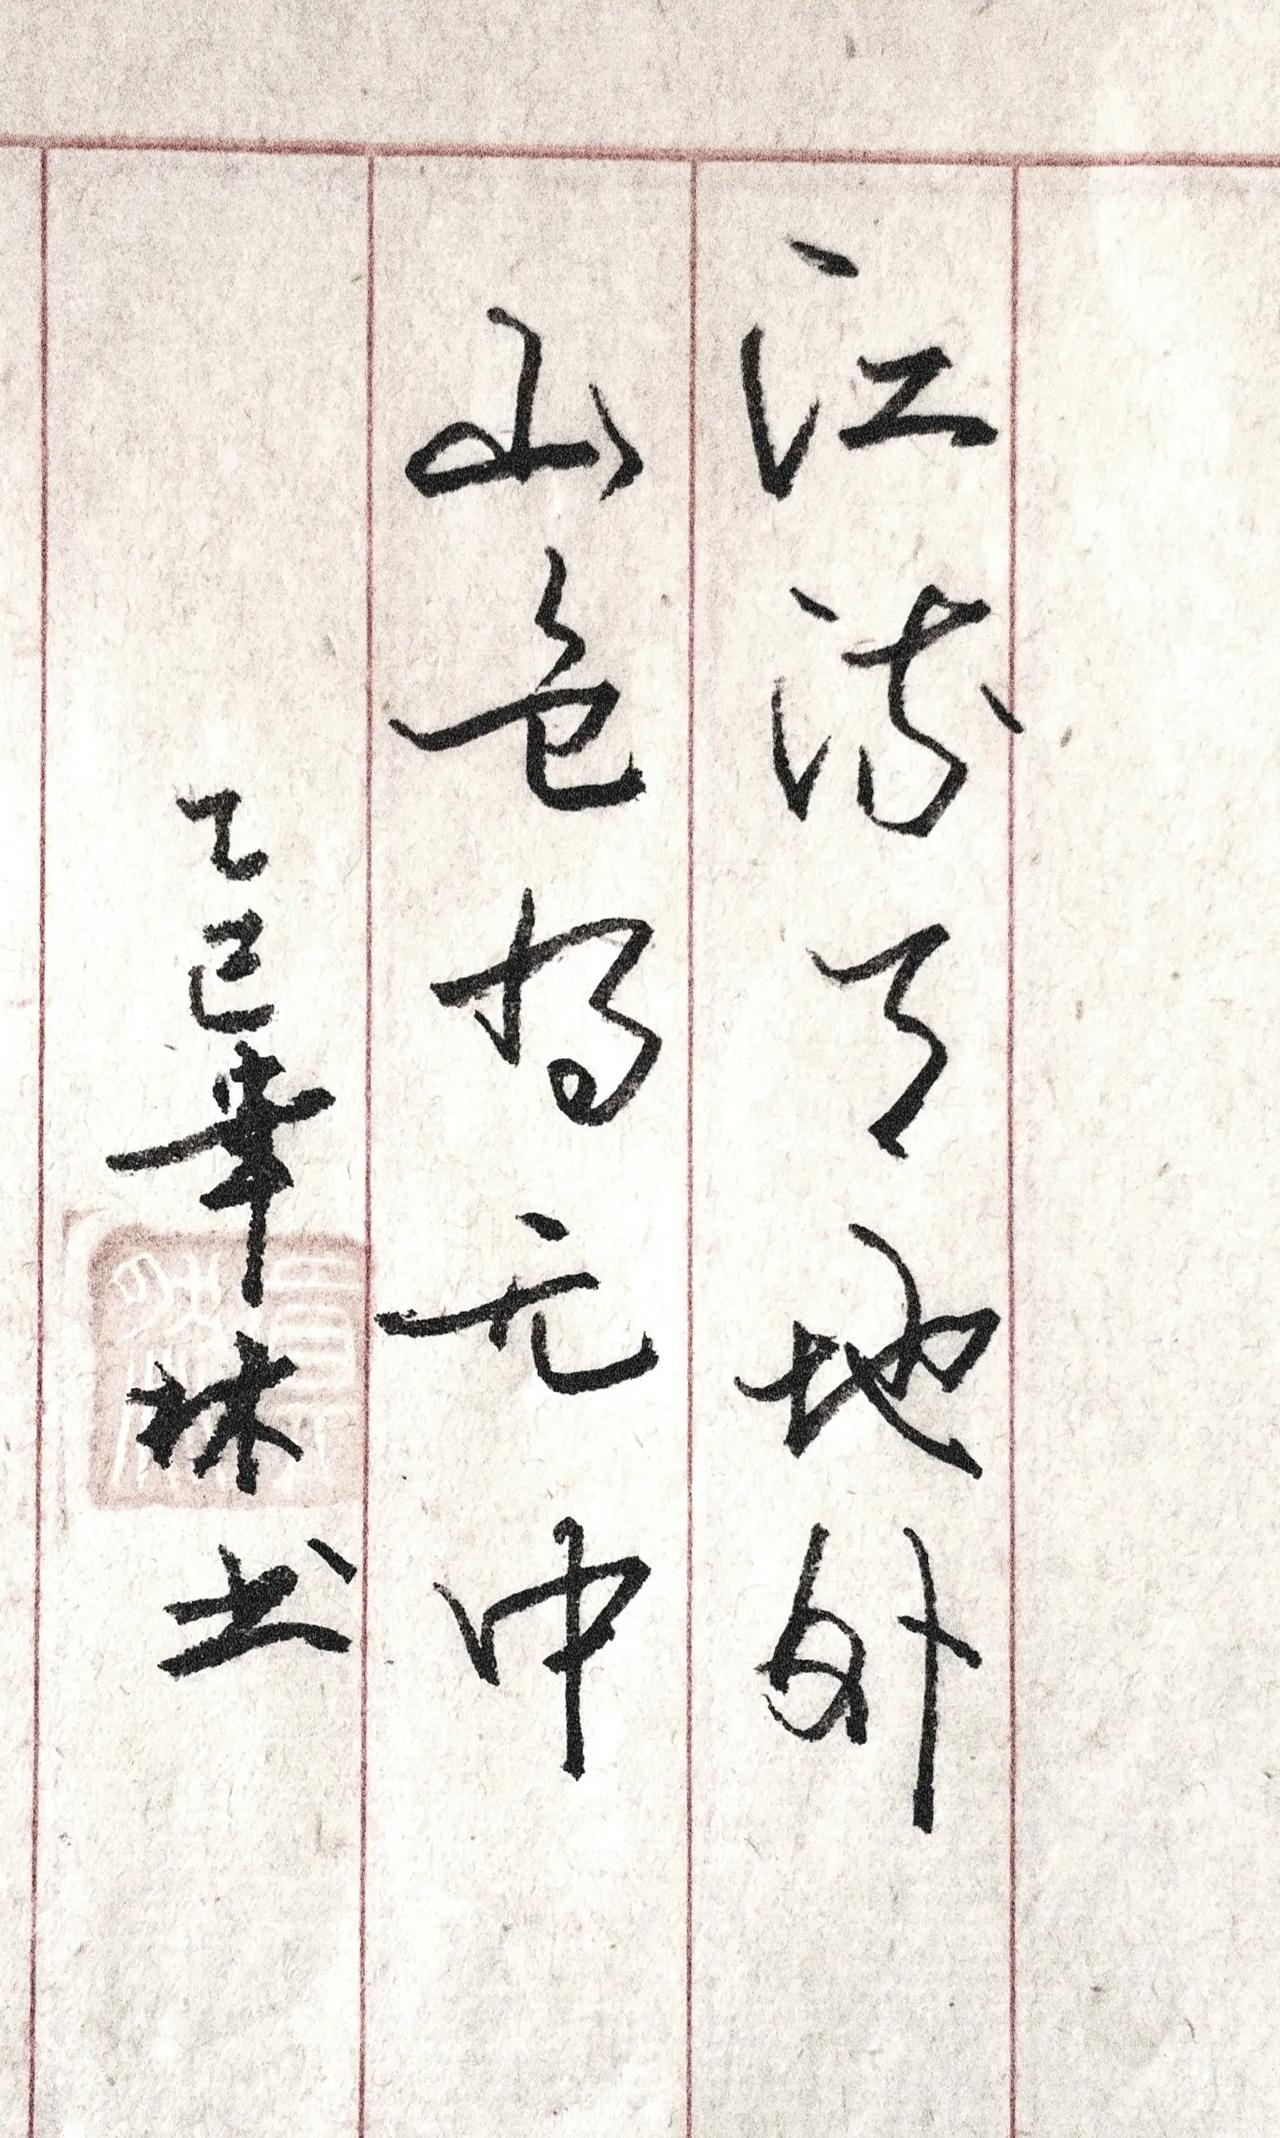 江流天地外
山色有无中
乙巳華林书